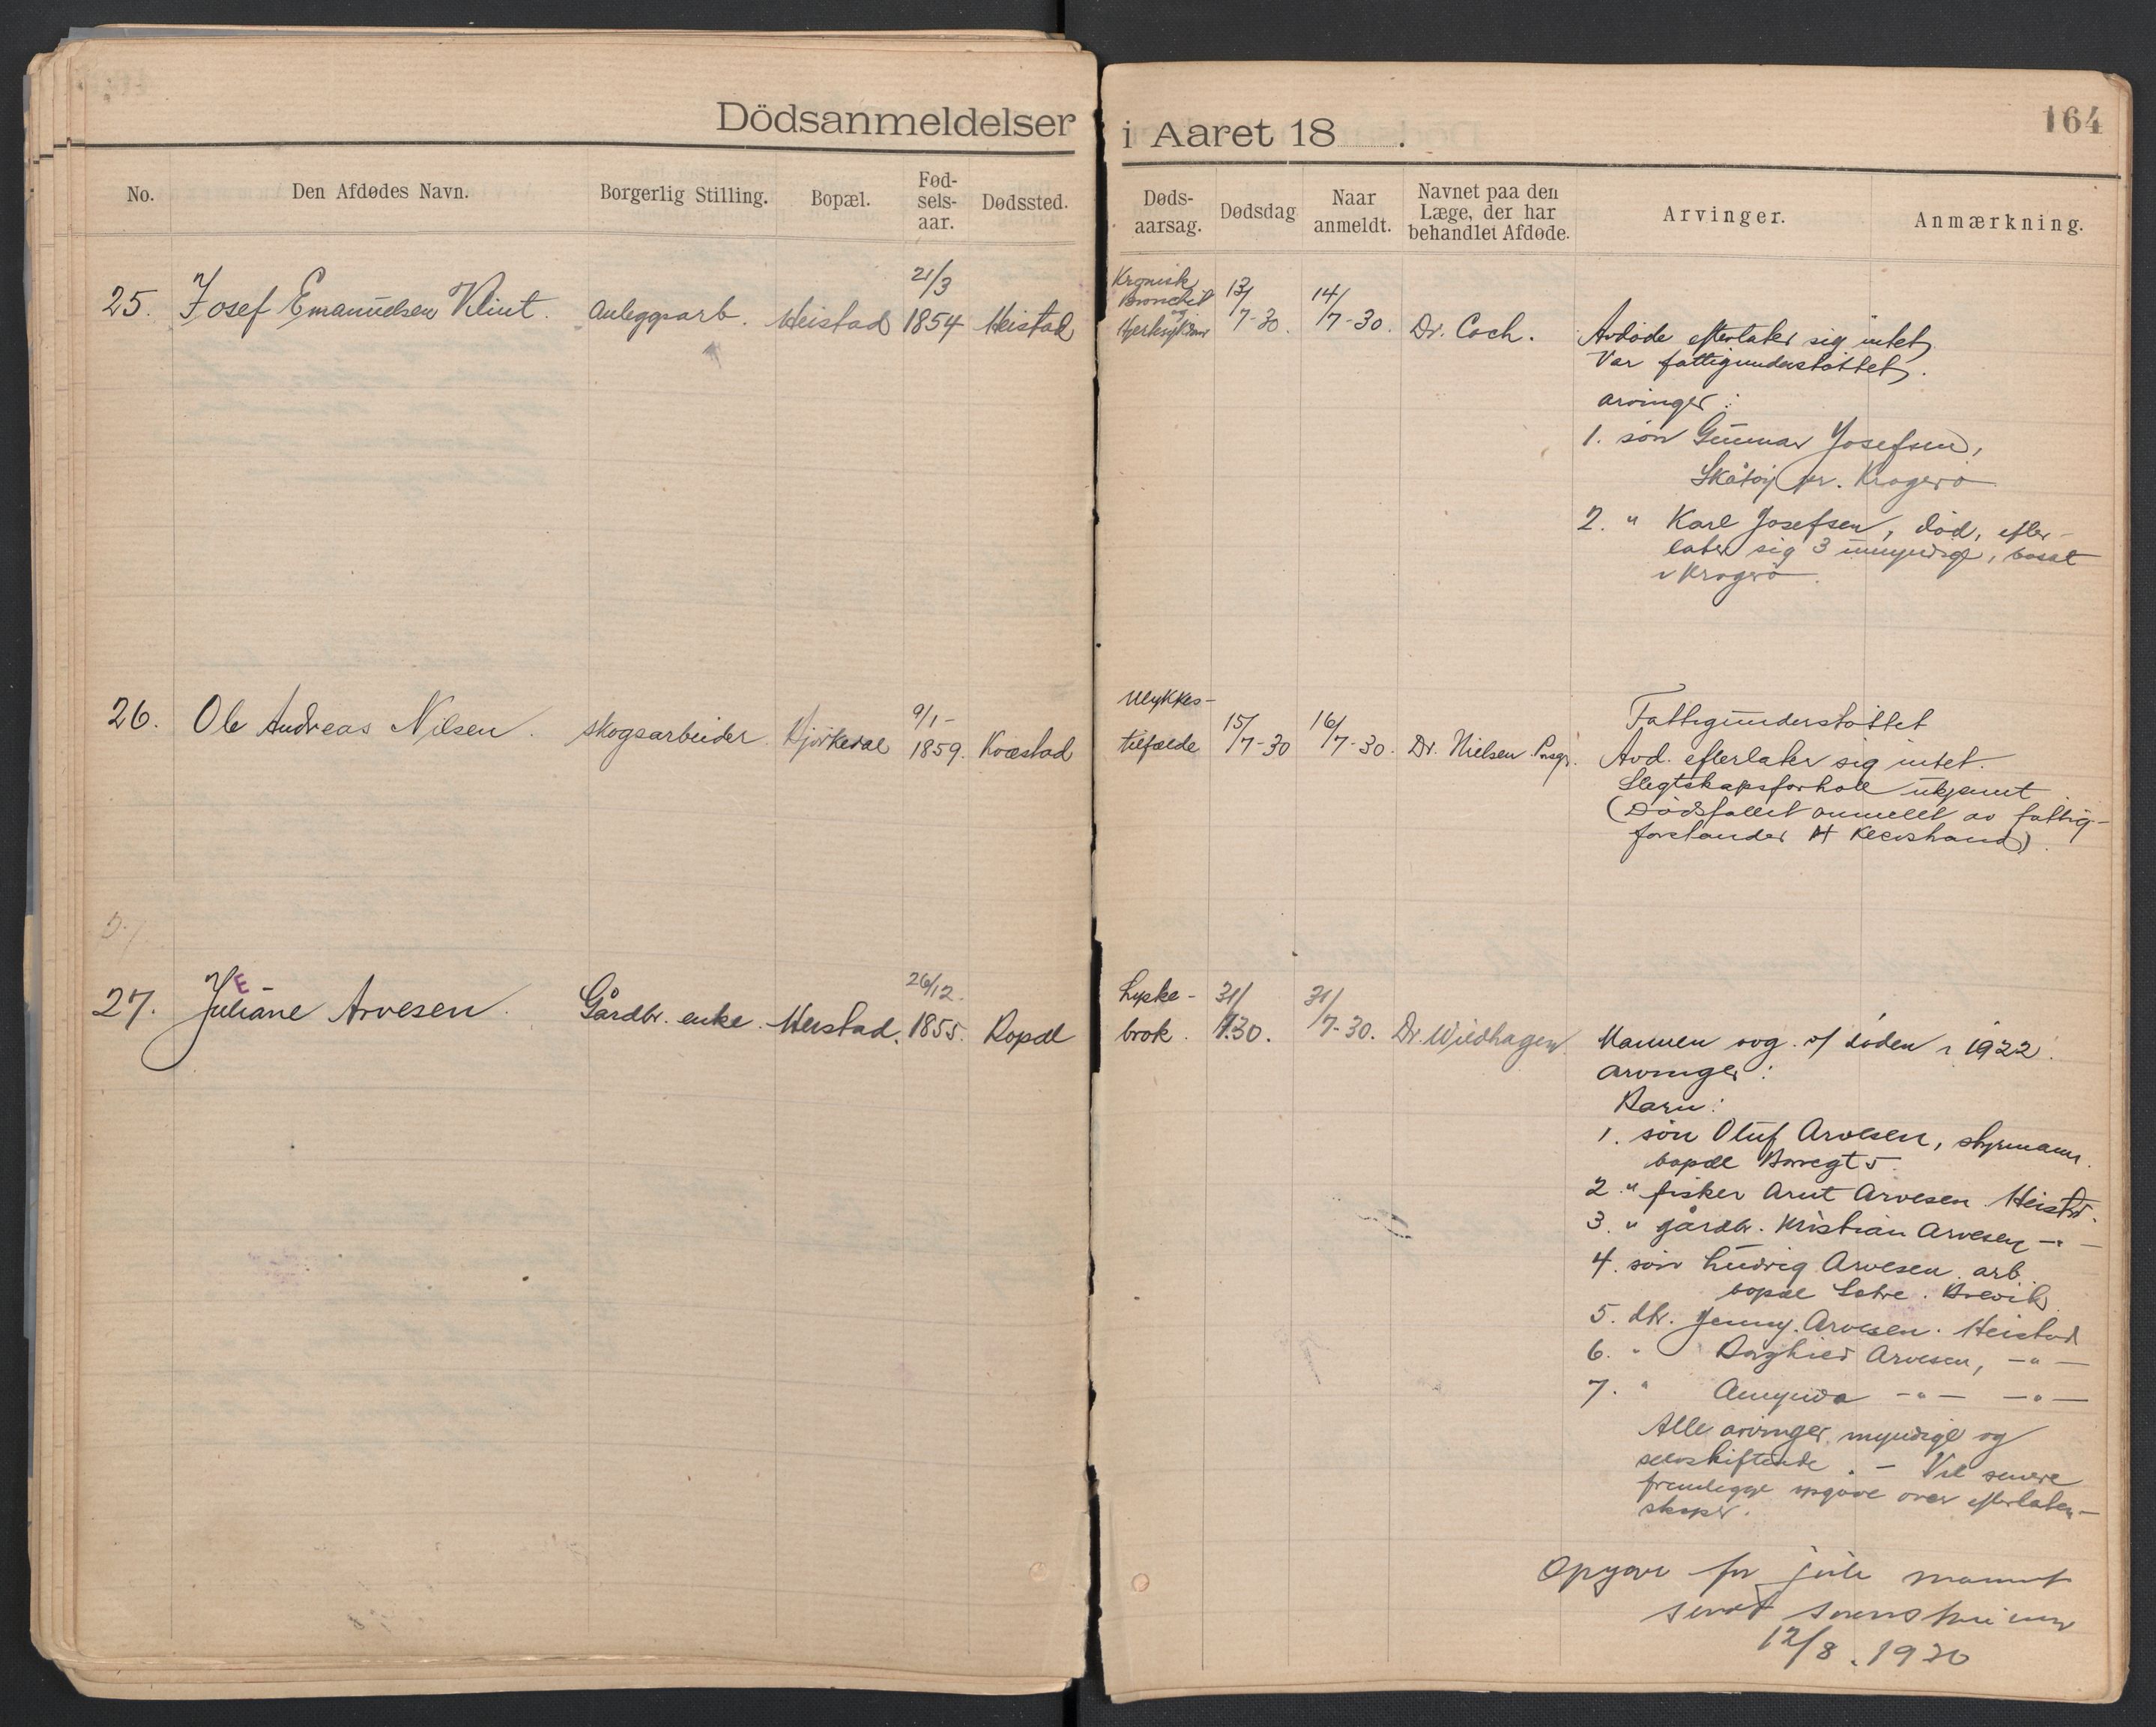 Dödsanmeldelser i Aaret 18 .
164
No. Den Afdødes Navn. Borgerlig Stilling. Bopæl. Fød-
sels-
aar. Dødssted. Døds-
aarsag. Dødsdag Naar
anmeldt. Navnet paa den
Læge, der har
behandlet Afdøde. Arvinger. Anmærkning.
25. Josef Emanuelsen Klint. anleggsarb. Heistad 21/3
1854 Heistad Kronisk
Bronchit
og
13/
7-30. 14/
7-30. Dr. Coch. Avdöde efterlater sig intet,
Var fattigunderstöttet.
arvinger:
1. sön Gunnar Josefsen,
Skåtöy pr. Kragerö
2. " Karl Josefsen, död, efter-
later sig 3 umyndige, bosat
i Kragerö.
26. Ole Andreas Nilsen. skogsarbeider Bjørkedal 9/1-
1859. Kvæstad Ulykkes-
tilfælde 15/
7-30 16/
7-30. Dr. Nielsen Porsgr. Fattigunderstöttet
Avd. efterlater sig intet.
Slegtskapsforhold ukjent
(Dödsfallet anmeldt av fattig-
forstander H
27. Juliane Arvesen. E Gårdbr. enke. Heistad. 26/12.
1855. Bopæl Lyske-
brok. 31/
7.30. 31/
7-30. Dr. Wildhagen Mannen avg. v/ döden i 1922.
arvinger:
Barn:
1. sön Oluf Arvesen, styrmann.
bopæl
2. " fisker Arnt Arvesen. Heistad.
3. " gårdbr. Kristian Arvesen -"-
4. sön Ludvig Arvesen. arb.
bopæl Brevik.
5. dtr. Jenny Arvesen. Heistad
6. " Borghild Arvesen, -"-
7. " -"- -"-
Alle arvinger myndige og
selvskiftende. - Vil senere
fremlegge opgave over efterlaten-
skaper.
Opgave for juli
sendt
12/8. 1930